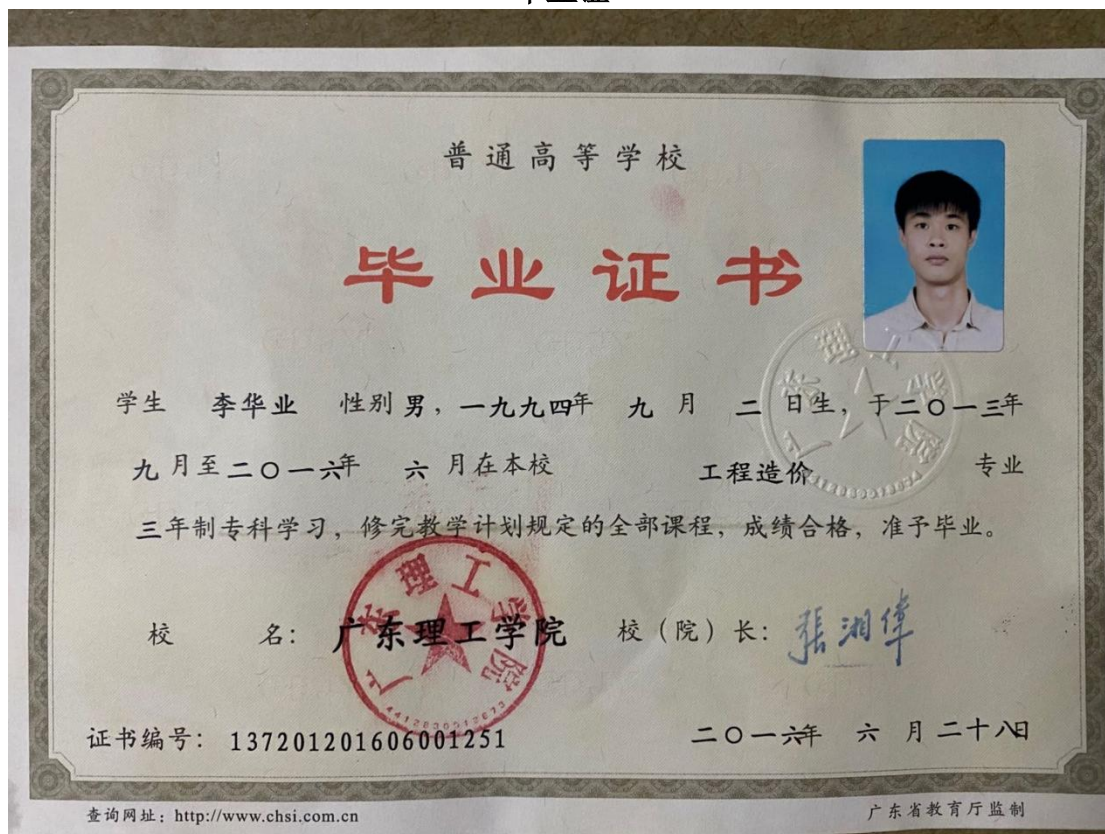 普通高等学校
毕业证书
学生 李华业 性别 男，一九九四年 九 月 二 日生，于二〇一三年
九 月至二〇一六年 六 月在本校 工程造价 专业
三年制专科学习，修完教学计划规定的全部课程，成绩合格，准予毕业。
校 名：广东理工学院 校（院）长：張湘偉
广东理工学院
广东理工学院
证书编号：137201201606001251 二〇一六年 六 月二十八日
查询网址：http://www.chsi.com.cn 广东省教育厅监制